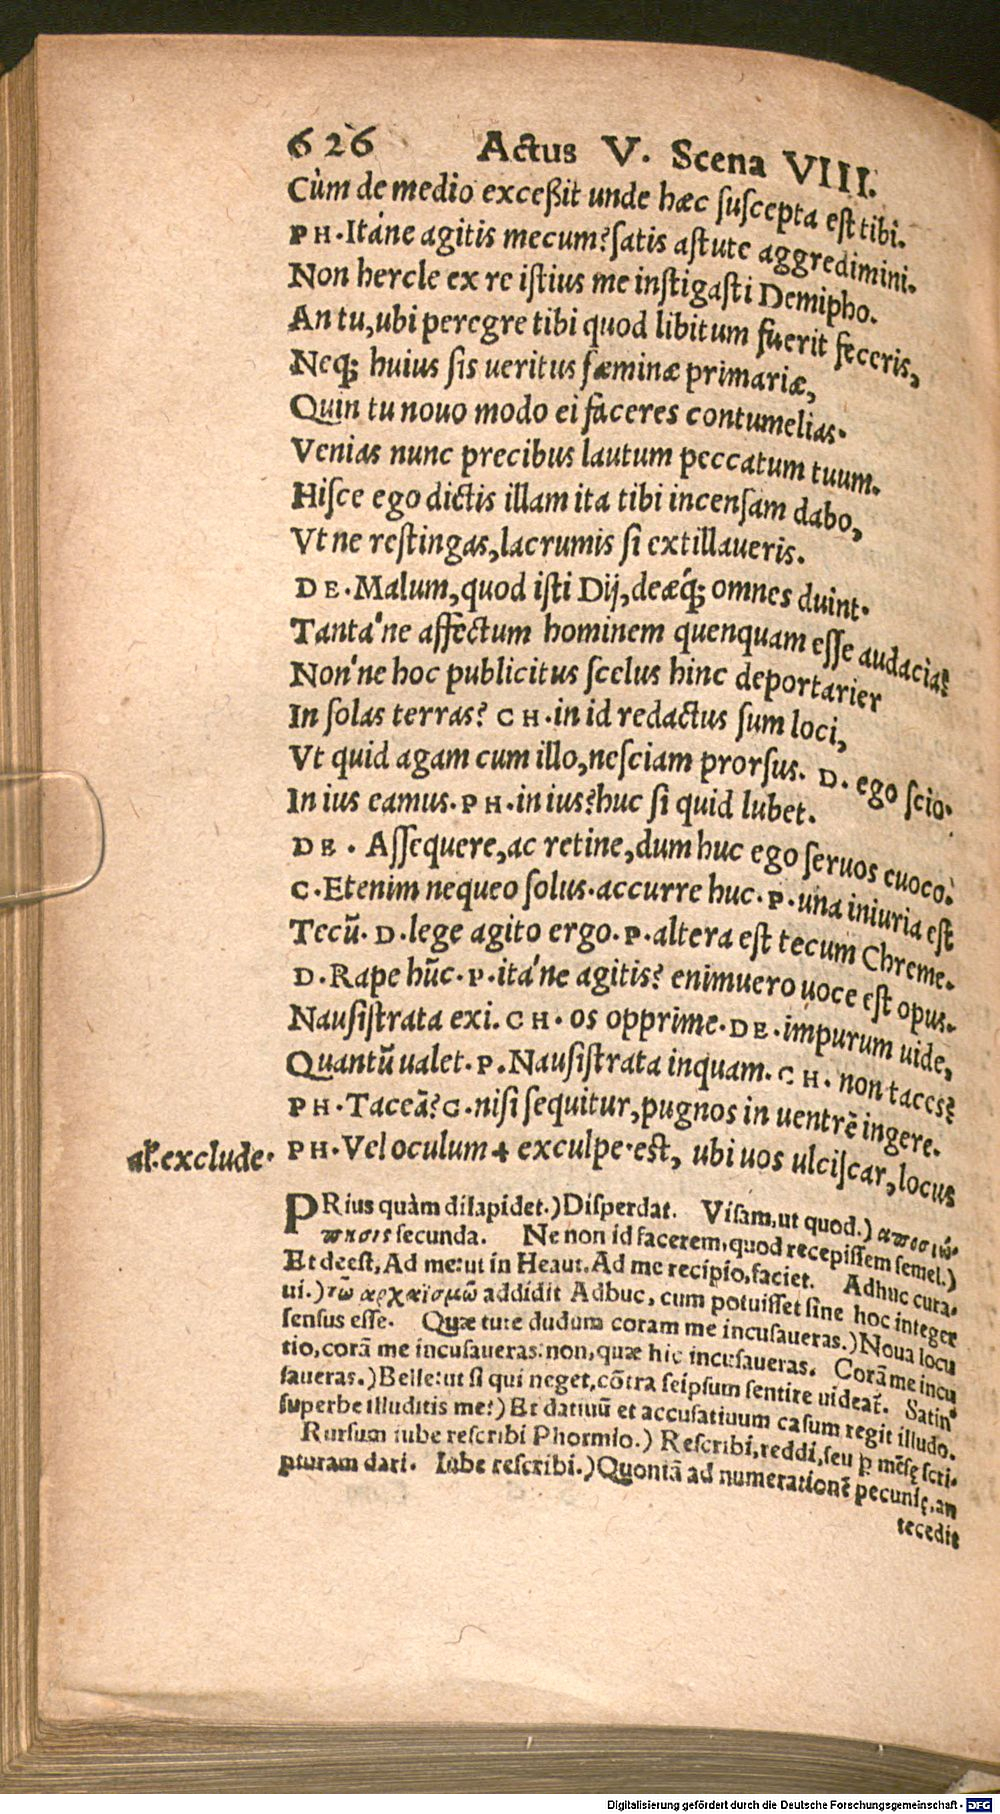 626 Actus V. Scena VIII.
Cùm de medio exceßit unde hæc ſuſcepta eſt tibi.
PH. Itáne agitis mecum? ſatis aſtute aggredimini.
Non hercle ex re iſtius me inſtigaſti Demipho.
An tu, ubi peregre tibi quod libitum fuerit feceris,
Neq; huius ſis ueritus fæminæ primariæ,
Quin tu nouo modo ei faceres contumelias.
Venias nunc precibus lautum peccatum tuum.
Hiſce ego dictis illam ita tibi incenſam dabo,
Vt ne reſtingas, lacrumis ſi extillaueris.
DE. Malum, quod iſti Dij, deæq́; omnes duint.
Tanta'ne affectum hominem quenquam eſſe audacia?
Non'ne hoc publicitus ſcelus hinc deportarier
In ſolas terras? CH. in id redactus ſum loci,
Vt quid agam cum illo, neſciam prorſus. D. ego ſcio.
In ius eamus. PH. in ius? huc ſi quid lubet.
DE. Aſſequere, ac retine, dum huc ego ſeruos euoco.
C. Etenim nequeo ſolus. accurre huc. P. una iniuria eſt
Tecũ. D. lege agito ergo. P. altera eſt tecum Chreme.
D. Rape hũc. P. itá'ne agitis? enimuero uoce eſt opus.
Nauſiſtrata exi. CH. os opprime. DE. impurum uide,
Quantũ ualet. P. Nauſiſtrata inquam. CH. non taces?
PH. Taceã? C. niſi ſequitur, pugnos in uentrẽ ingere.
al. exclude. PH. Vel oculum + exculpe. est, ubi uos ulciſcar, locus
PRius quàm dilapidet.) Diſperdat. Viſam, ut quod.) αποσιώ-
πησις ſecunda. Ne non id facerem, quod recepiſſem ſemel.)
Et deeſt, Ad me: ut in Heaut. Ad me recipio, faciet. Adhuc cura-
ui.) τῶ αρχαϊσμῶ addidit Adhuc, cum potuiſſet ſine hoc integer
ſenſus eſſe. Quæ tute dudum coram me incuſaueras.) Noua locu
tio, corã me incuſaueras: non, quæ hic incuſaueras. Corã me incu
ſaueras.) Belle: ut ſi qui neget, cõtra ſeipſum ſentire uideať. Satin'
ſuperbe illuditis me?) Et datiuũ et accuſatiuum caſum regit illudo.
Rurſum iube reſcribi Phormio.) Reſcribi, reddi, ſeu ꝑ mẽſę ſcri-
pturam dari. Iube reſcribi.) Quoniã ad numerationẽ pecunię, an
tecedit
Digitalisierung gefördert durch die Deutsche Forschungsgemeinschaft - DFG